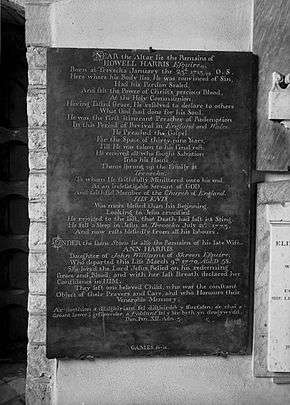 NEAR the Altar lie the Remains of
HOWELL HARRIS Esquire,
Born at Trevecka January the 23d 1713/14 O. S.
Here where his Body lies, He was convinced of Sin,
Had his Pardon Sealed,
And felt the Power of Christ's precious Blood,
At the Holy Communion.
Having Tasted Grace, He resolved to declare to others
What God had done for his Soul.
He was the first itinerant Preacher of Redemption
In this Period of Revival in England and Wales.
He Preached the Gospel
For the Space of thirty-nine Years,
Till He was taken to his final Rest.
He received all who sought Salvation
Into his House.
Then sprung up the Family at
Trevecka,
To whom He faithfully Ministered unto his end,
As an indefatigable Servant of GOD,
And faithful Member of the Church of England.
HIS END
Was more blessed than his Beginning.
Looking to Jesus crucified
He rejoiced to the last, that Death had lost its Sting.
He fell a Sleep in Jesus at Trevecka July 21st 1773,
And now rests blessedly from all his Labours.
UNDER the same Stone lie also the Remains of his late Wife
ANN HARRIS
Daughter of John Williams of Skreen Esquire
Who departed this Life March 9th 1770, Aged 58.
She loved the Lord Jesus, Relied on his redeeming
Grace and Blood, and with her last Breath declared her
Confidence in HIM.
They left one beloved Child, who was the constant
Object of their Prayers and Care, and who Honours their
Venerable Memory.
Dan. Pen. XII. Adn. 3.
GAMES